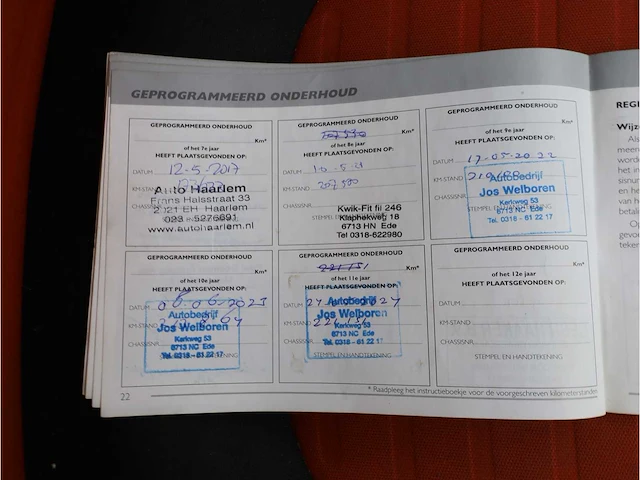 GEPROGRAMMEERD ONDERHOUD
GEPROGRAMMEERD ONDERHOUD
Km*
of het 7e jaar
HEEFT PLAATSGEVONDEN OP:
DATUM 12-5-2017
KM-STAND
CHASSISNR.
Auto Haarlem
Frans Halsstraat 33
2021 EH Haarlem
023 - 5276691
www.autohaarlem.nl
GEPROGRAMMEERD ONDERHOUD
Km*
of het 8e jaar
HEEFT PLAATSGEVONDEN OP:
DATUM 10-5-21
KM-STAND 207580
CHASSISNR.
Kwik-Fit fil 246
Klaphekweg 18
STEMPEL EN
6713 HN Ede
Tel 0318-622980
GEPROGRAMMEERD ONDERHOUD
Km*
of het 9e jaar
HEEFT PLAATSGEVONDEN OP:
DATUM 17-05-2022
KM-STAND
CHASSISNR.
Autobedrijf
Jos Welboren
Kerkweg 53
6713 NC Ede
Tel. 0318 - 61 22 17
GEPROGRAMMEERD ONDERHOUD
Km*
of het 10e jaar
HEEFT PLAATSGEVONDEN OP:
DATUM 06-06-2023
KM-STAND
CHASSISNR.
Autobedrijf
Jos Welboren
Kerkweg 53
6713 NC Ede
Tel. 0318 - 61 22 17
GEPROGRAMMEERD ONDERHOUD
221151
Km*
of het 11e jaar
HEEFT PLAATSGEVONDEN OP:
DATUM
KM-STAND
CHASSISNR.
Autobedrijf
Jos Welboren
Kerkweg 53
6713 NC Ede
Tel. 0318 - 61 22 17
STEMPEL EN HANDTEKENING
GEPROGRAMMEERD ONDERHOUD
Km*
of het 12e jaar
HEEFT PLAATSGEVONDEN OP:
DATUM
KM-STAND
CHASSISNR.
STEMPEL EN HANDTEKENING
* Raadpleeg het instructieboekje voor de voorgeschreven kilometerstanden
22
REGI
Wijze